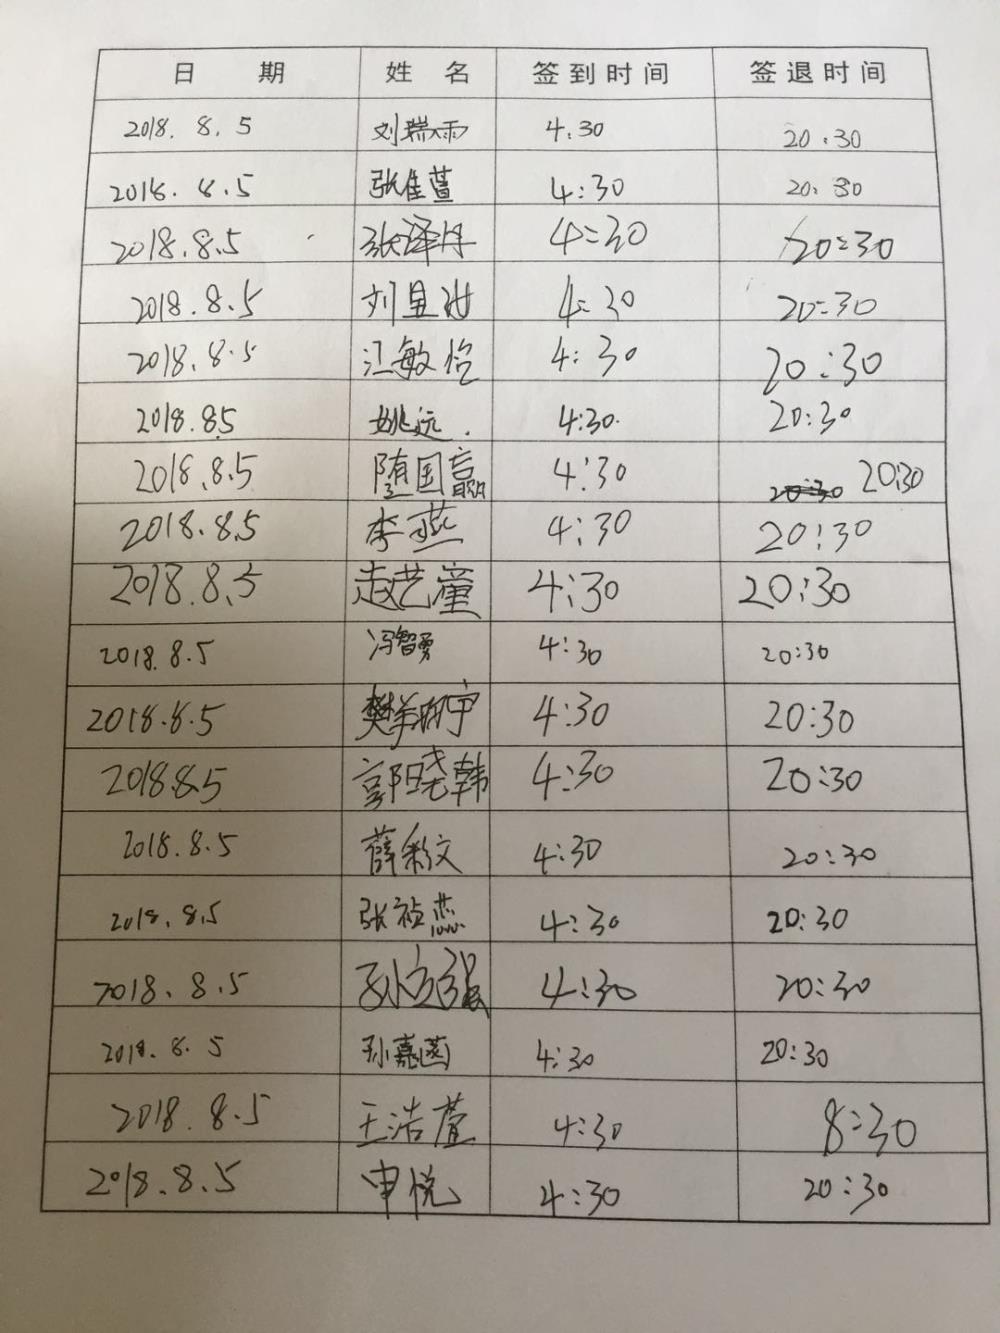 日 期 姓 名 签到时间 签退时间
2018. 8. 5 刘瑞雨 4:30 20:30
2018. 8.5 张佳萱 4:30 20:30
2018.8.5 张泽丹 4:30 20:30
2018.8.5 刘 4:30 20:30
2018.8.5 江敏怡 4:30 20:30
2018.8.5 姚远. 4:30. 20:30
2018.8.5 随国赢 4:30 20:30 20:30
2018.8.5 李燕 4:30 20:30
2018.8.5 赵艺童 4:30 20:30
2018.8.5 冯智勇 4:30 20:30
2018.8.5 4:30 20:30
2018.8.5 郭晓韩 4:30 20:30
2018.8.5 薛彩文 4:30 20:30
2018.8.5 张祯燕 4:30 20:30
2018.8.5 孙立强 4:30 20:30
2018.8.5 孙嘉茵 4:30 20:30
2018.8.5 王浩萱 4:30 8:30
2018.8.5 申悦 4:30 20:30